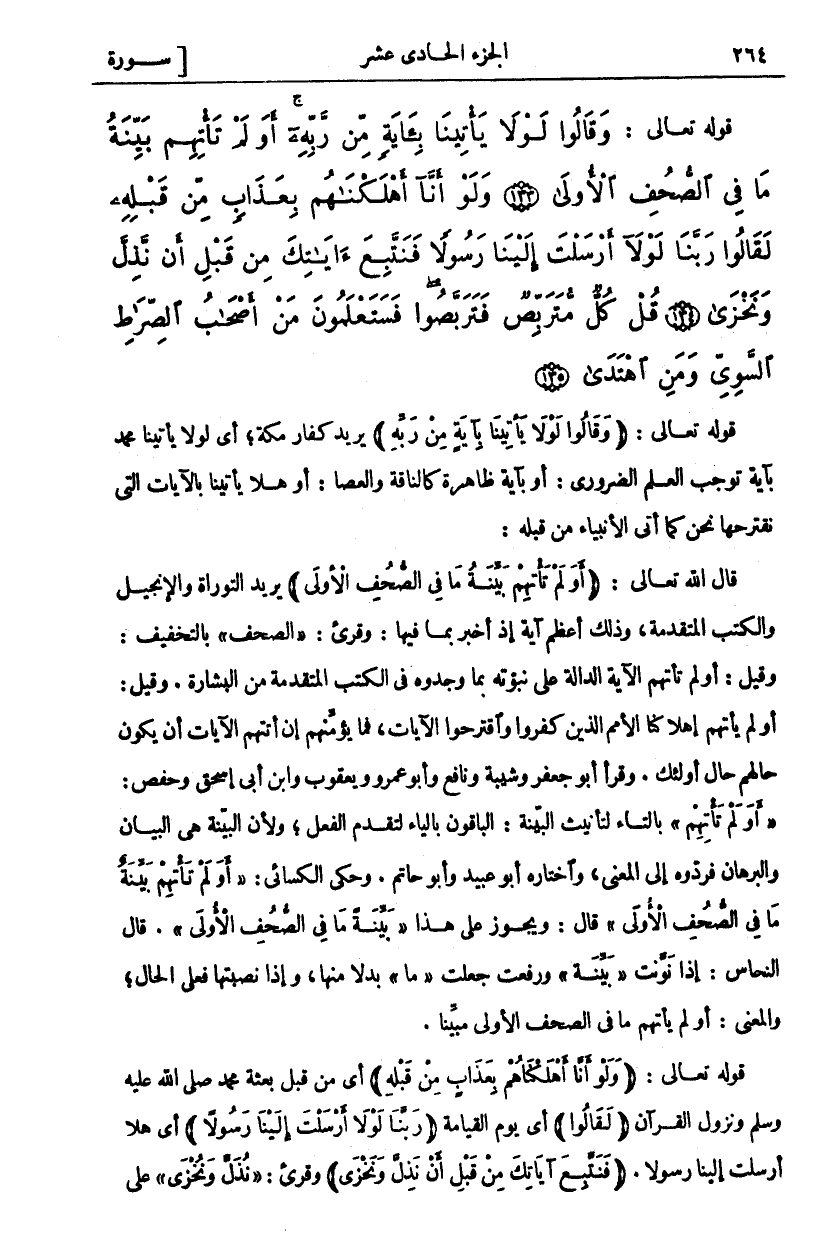 ٢٦٤ الجزء الحادى عشر [ سـورة
قوله تعـالى : وَقَالُوا لَوْلَا يَأْتِينَا بِـَٔايَةٍ مِّن رَّبِّهِۦٓ ۚ أَوَ لَمْ تَأْتِهِم بَيِّنَةُ
مَا فِي ٱلصُّحُفِ ٱلْأُولَىٰ ١٣٣ وَلَوْ أَنَّآ أَهْلَكْنَـٰهُم بِعَذَابٍ مِّن قَبْلِهِۦ
لَقَالُوا رَبَّنَا لَوْلَآ أَرْسَلْتَ إِلَيْنَا رَسُولًا فَنَتَّبِعَ ءَايَـٰتِكَ مِن قَبْلِ أَن نَّذِلَّ
وَنَخْزَىٰ ١٣٤ قُلْ كُلٌّ مُّتَرَبِّصٌ فَتَرَبَّصُوا ۖ فَسَتَعْلَمُونَ مَنْ أَصْحَـٰبُ ٱلصِّرَٰطِ
ٱلسَّوِيِّ وَمَنِ ٱهْتَدَىٰ ١٣٥
قوله تعـالى : ﴿ وَقَالُوا لَوْلَا يَأْتِينَا بِآيَةٍ مِنْ رَبِّهِ ﴾ يريد كفار مكة؛ أى لولا يأتينا محمد
بآية توجب العـلم الضرورى : أو بآية ظاهرة كالناقة والعصا : أو هـلا يأتينا بالآيات التى
نقترحها نحن كما أتى الأنبياء من قبله :
قال الله تعـالى : ﴿ أَوَ لَمْ تَأْتِهِمْ بَيِّنَةُ مَا فِى الصُّحُفِ الْأُولَى ﴾ يريد التوراة والإنجيـل
والكتب المتقدمة، وذلك أعظم آية إذ أخبر بمـا فيها : وقرئ : «الصحف» بالتخفيف :
وقيل : أو لم تأتهم الآية الدالة على نبوّته بما وجدوه فى الكتب المتقدمة من البشارة . وقيل :
أو لم يأتهم إهلاكنا الأمم الذين كفروا وٱقترحوا الآيات، فما يؤمِّنهم إن أتتهم الآيات أن يكون
حالهم حال أولئك . وقرأ أبو جعفر وشيبة ونافع وأبو عمرو ويعقوب وابن أبى إسحق وحفص :
« أَوَ لَمْ تَأْتِهِمْ » بالتـاء لتأنيث البيّنة : الباقون بالياء لتقـدم الفعل ؛ ولأن البيّنة هى البيـان
والبرهان فردّوه إلى المعنى، وٱختاره أبو عبيد وأبو حاتم . وحكى الكسائى : « أَوَ لَمْ تَأْتِهِمْ بَيِّنَةٌ
مَا فِى الصُّحُفِ الْأُولَى » قال : ويجـوز على هـذا « بَيِّنَـةً مَا فِى الصُّحُفِ الْأُولَى » . قال
النحاس : إذا نوّنت « بَيِّنَـة » ورفعت جعلت « ما » بدلا منها، وإذا نصبتها فعلى الحال؛
والمعنى : أو لم يأتهم ما فى الصحف الأولى مبيَّنا .
قوله تعـالى : ﴿ وَلَوْ أَنَّا أَهْلَكْنَاهُمْ بِعَذَابٍ مِنْ قَبْلِهِ ﴾ أى من قبل بعثة محمد صلى الله عليه
وسلم ونزول القـرآن ﴿ لَقَالُوا ﴾ أى يوم القيامة ﴿ رَبَّنَا لَوْلَا أَرْسَلْتَ إِلَيْنَا رَسُولًا ﴾ أى هلا
أرسلت إلينا رسولا . ﴿ فَنَتَّبِعَ آيَاتِكَ مِنْ قَبْلِ أَنْ نَذِلَّ وَنَخْزَى ﴾ وقرئ : « نُذَلَّ وَنُخْزَى » على